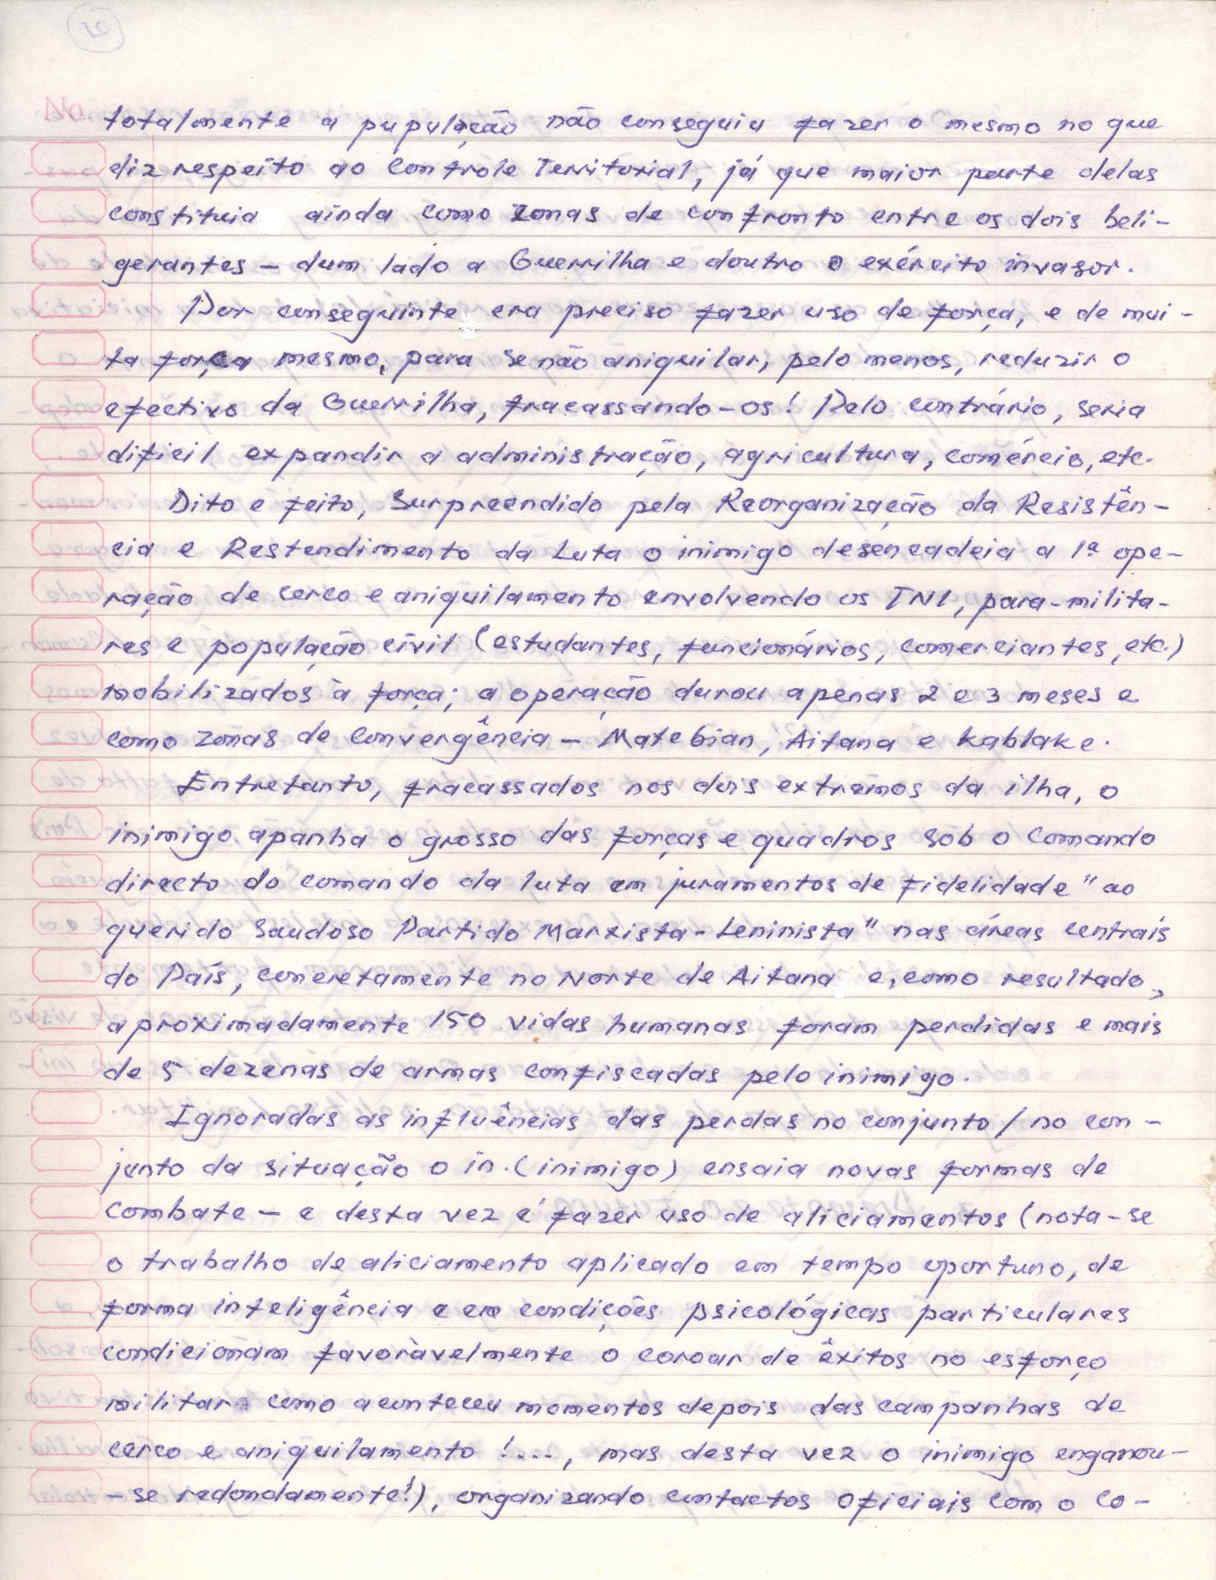 21
No.
totalmente a pupulação não conseguiu fazer o mesmo no que
diz respeito ao Controle Territorial, já que maior parte delas
constituia ainda como zonas de confronto entre os dois beli-
gerantes - dum lado a Guerrilha e doutro o exército invasor.
Por conseguinte era preciso fazer uso de força, e de mui-
ta força mesmo, para se não aniquilar, pelo menos, reduzir o
efectivo da Guerrilha, fracassando-os! Pelo contrário, seria
dificil expandir a administração, agricultura, comércio, etc.
Dito e feito, Surpreendido pela Reorganização da Resistên-
cia e Restendimento da Luta o inimigo desencadeia a 1ª ope-
ração de cerco e aniquilamento envolvendo os TNI, para-milita-
res e população civil (estudantes, funcionários, comerciantes, etc.)
mobilizados à força; a operação durou apenas 2 e 3 meses e
como zonas de convergência - Matebian, Aitana e Kablake.
Entretanto, fracassados nos dois extremos da ilha, o
inimigo apanha o grosso das forças e quadros sob o Comando
directo do comando da luta em juramentos de fidelidade "ao
querido Saudoso Partido Marxista-Leninista" nas áreas centrais
do País, concretamente no Norte de Aitana e, como resultado,
aproximadamente 150 vidas humanas foram perdidas e mais
de 5 dezenas de armas confiscadas pelo inimigo.
Ignoradas as influências das perdas no conjunto / no con-
junto da situação o in. (inimigo) ensaia novas formas de
Combate - e desta vez é fazer uso de aliciamentos (nota-se
o trabalho de aliciamento aplicado em tempo oportuno, de
forma inteligência e em condições psicológicas particulares
condicionam favoràvelmente o coroar de êxitos no esforço
militar como aconteceu momentos depois das campanhas de
cerco e aniquilamento !..., mas desta vez o inimigo enganou-
-se redondamente!), organizando contactos oficiais com o Co-